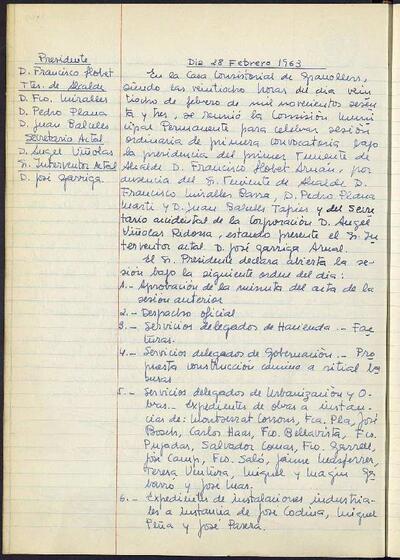 Presidente
D. Francisco Llobet
Ttes. de Alcalde
D. Fco. Miralles
D. Pedro Plana
D. Juan Barceles
Secretario Actal
D. Angel Viñolas
Sr. Interventor Actal
D. José Garriga.
Dia 28 Febrero 1963
En la Casa Consistorial de Granollers,
siendo las veintiocho horas del día vein
tiocho de febrero de mil novecientos sesen
ta y tres, se reunió la Comisión Muni
cipal Permanente para celebrar sesión
ordinaria de primera convocatoria bajo
la presidencia del primer Teniente de
Alcalde D. Francisco Llobet Arnán, por
ausencia del Sr. Teniente de Alcalde D.
Francisco Miralles Barra, D. Pedro Plana
Martí y D. Juan Barceles Tapias y del Secre
tario accidental de la Corporación D. Angel
Viñolas Ridossa, estando presente el Sr. In
terventor actal D. José Garriga Arnal.
El Sr. Presidente declara abierta la se
sión bajo la siguiente orden del día:
1.- Aprobación de la minuta del acta de la
sesión anterior
2.- Despacho oficial
3.- Servicios delegados de Hacienda .- Fac
turas.
4.- Servicios delegados de Gobernación .- Pro
puesta construcción camino a
5.- Servicios delegados de Urbanización y O-
bras.- Expedientes de obras a instan
cias de: Montserrat Fca. Pla, José
Bosch, Carlos Haas, Fco. Bellavista, Fco.
Pujadas, Salvador Comas, Fco. Garrell,
José Camp, Fco. Saló, Jaime Masferrer,
Teresa Ventura, Miguel y Magín Ga
barró y José Mas.
6.- Expedientes de instalaciones industria-
les a instancia de José Codina, Miguel
Peña y José Parera.